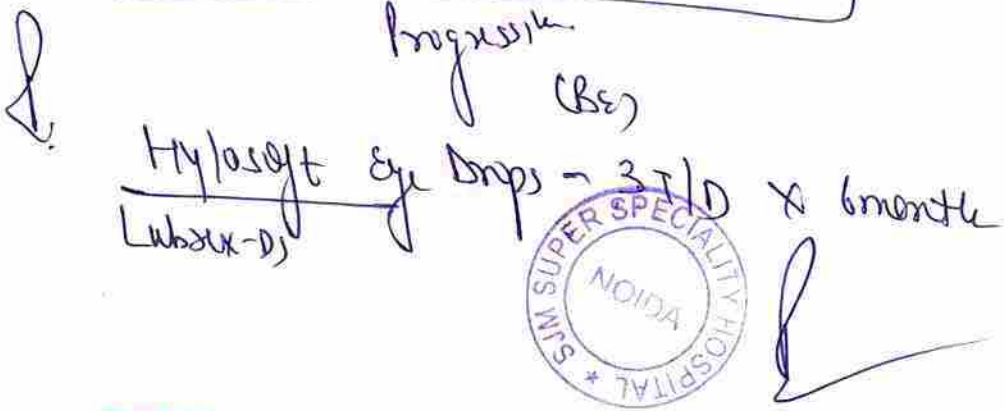 Progressive
(BE)
Hylosoft Eye Drops - 3 T/D x 6 month
SJM SUPER SPECIALITY HOSPITAL *
NOIDA